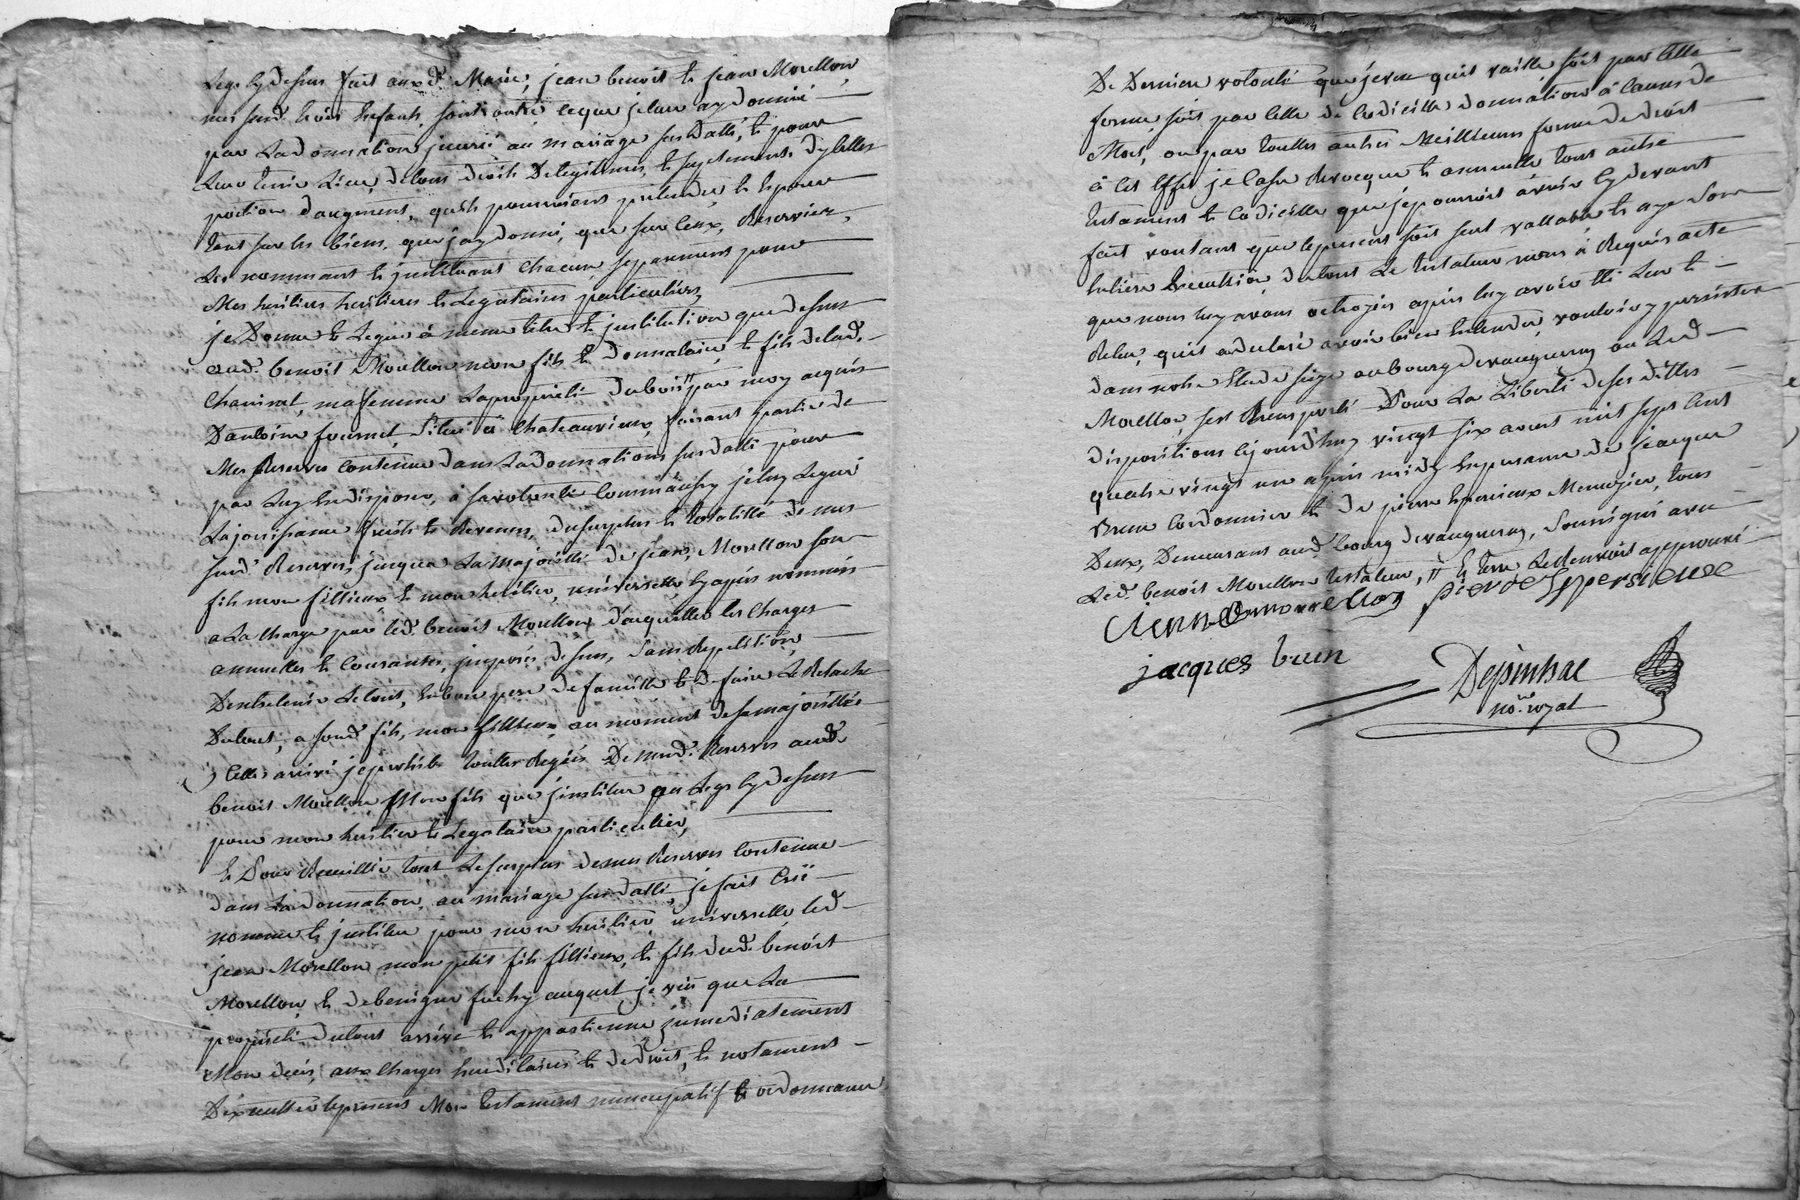 Legs cy dessus fait aux d. Marie, jean benoit et jean Morellon,
mes susd. trois Enfants, sont outre ceque jeleur ay donnné
par La donnation jnseré au mariage susdatté, et pour
Leur tenir Lieu de tous droits De legitimes, et suplements d'ycelles
portion daugment, qu'ils pourroient pretendre, et Esperer
tant sur les biens, que jay donné, que sur Ceux, Reservéz,
Les nommant et jnstituant Chacun separement pour
Mes heritiers heritieres et Legataires particuliers,
je Donne et Legue à meme titre et jnstitution que dessus
aud. benoit Morellon mon fils et donnataire et fils de lad.
ma femme La proprieté du bois par moy acquis
D'antoine fournel, Situé à Chateauvieux, faisant partie de
Mes Reserves Contenue dans La donnations susdatté pour
par Luy En disposer, à sa volonté Comm'aussy je luy Legue
La jouissance fruits et Revenus, du surplus et totallité de mes
susd. Reserves jusques La majoritté de jean, Morellon son
fils mon fillieux et mon heritier, universelle, Cy après nommés
a La charge par led. benoit Morellon d'acquitter les Charges
annuelles et Courantes, jmposés dessus, Sans Repetition,
D'entretenir Letout, En bon pere de famille et de faire Le Relache
Dutout, a sond. fils, mon fillieux au moment de sa majorittée
Celle arrivé je prohibe toutte Regie De mesd. Reserves aud.
benoit Morellon Mon fils que j'institue au Legs Cy dessus
pour mon heritier et Legataire particulier,
Et Pour Recuillir tout Le surplus de mes Reserves Contenue
dans La donnation au mariage susdatté, je fait Créé
nomme et jnstitue pour mon heritier universelle led.
jean Morellon mon petit fils fillieux, et fils dud. benoit
Morellon, et de benigne auquel je veu que La
proprieté dutout arrive et appartienne jmmediatement
Mon décés, aux Charges hereditaires et de droit, et notament
D'éxecutter le présent Mon testament nuncupatif et ordonnance
De Derniere volonté que je veu qu'il vaille soit par Cette
forme, soit par Celle de Codicille donnation à Cause de
Mort, ou par touttes autres Meillieures forme de droit
à Cet Effet je Casse Revocque et annulle tout autre
testament et Codicille que je pourrois avoir Cy devant
fait voulant que le present soit seul vallable et aye Son
Entiere Execution du tout Le testateur nous à Requis acte
que nous luy avons octroyés après luy avoir été Leu et
Releu, qu'il a declaré avoir bien Entendu, vouloir y persister
dans notre Etude size au bourg devaugneray ou Led.
Morellon sest transporté Pour La Liberté de ses dittes
dispositions Cejourdhuy vingt six aoust mil sept Cent
quatre vingt un après midy En presence de jacques
Brun Cordonnier et de pierre Menuzier, tous
Deux, Demeurans aud. bourg devaugneray, Soussignés avec
Led. benoit Morellon testateur,
jacques brun
no.re royal